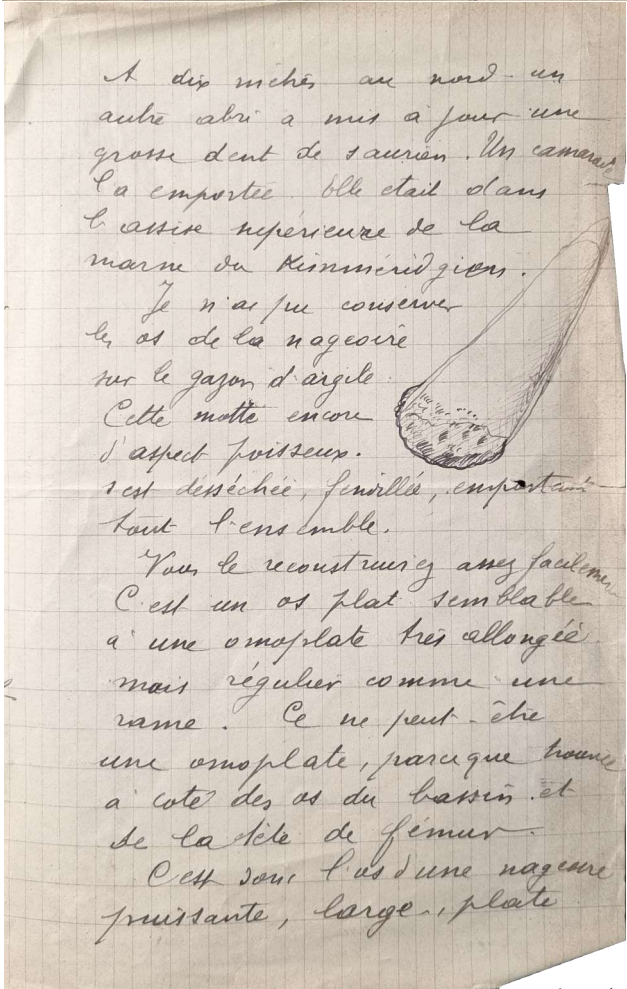 A dix mètres au nord un
autre abri a mis à jour une
grosse dent de saurien. Un camarade
l'a emportée. Elle était dans
l'assise supérieure de la
marne du Kimméridgien.
Je n'ai pu conserver
les os de la nageoire
sur le gazon d'argile
Cette motte encore
d'aspect poisseux.
s'est desséchée, fendillée, emportant
tout l'ensemble.
Vous le reconstruirez assez facilement
C'est un os plat semblable
à une omoplate très allongée
mais régulier comme une
rame. Ce ne peut-être
une omoplate, parce que trouvé
à coté des os du bassin et
de la tête de fémur.
C'est donc l'os d'une nageoire
puissante, large, plate